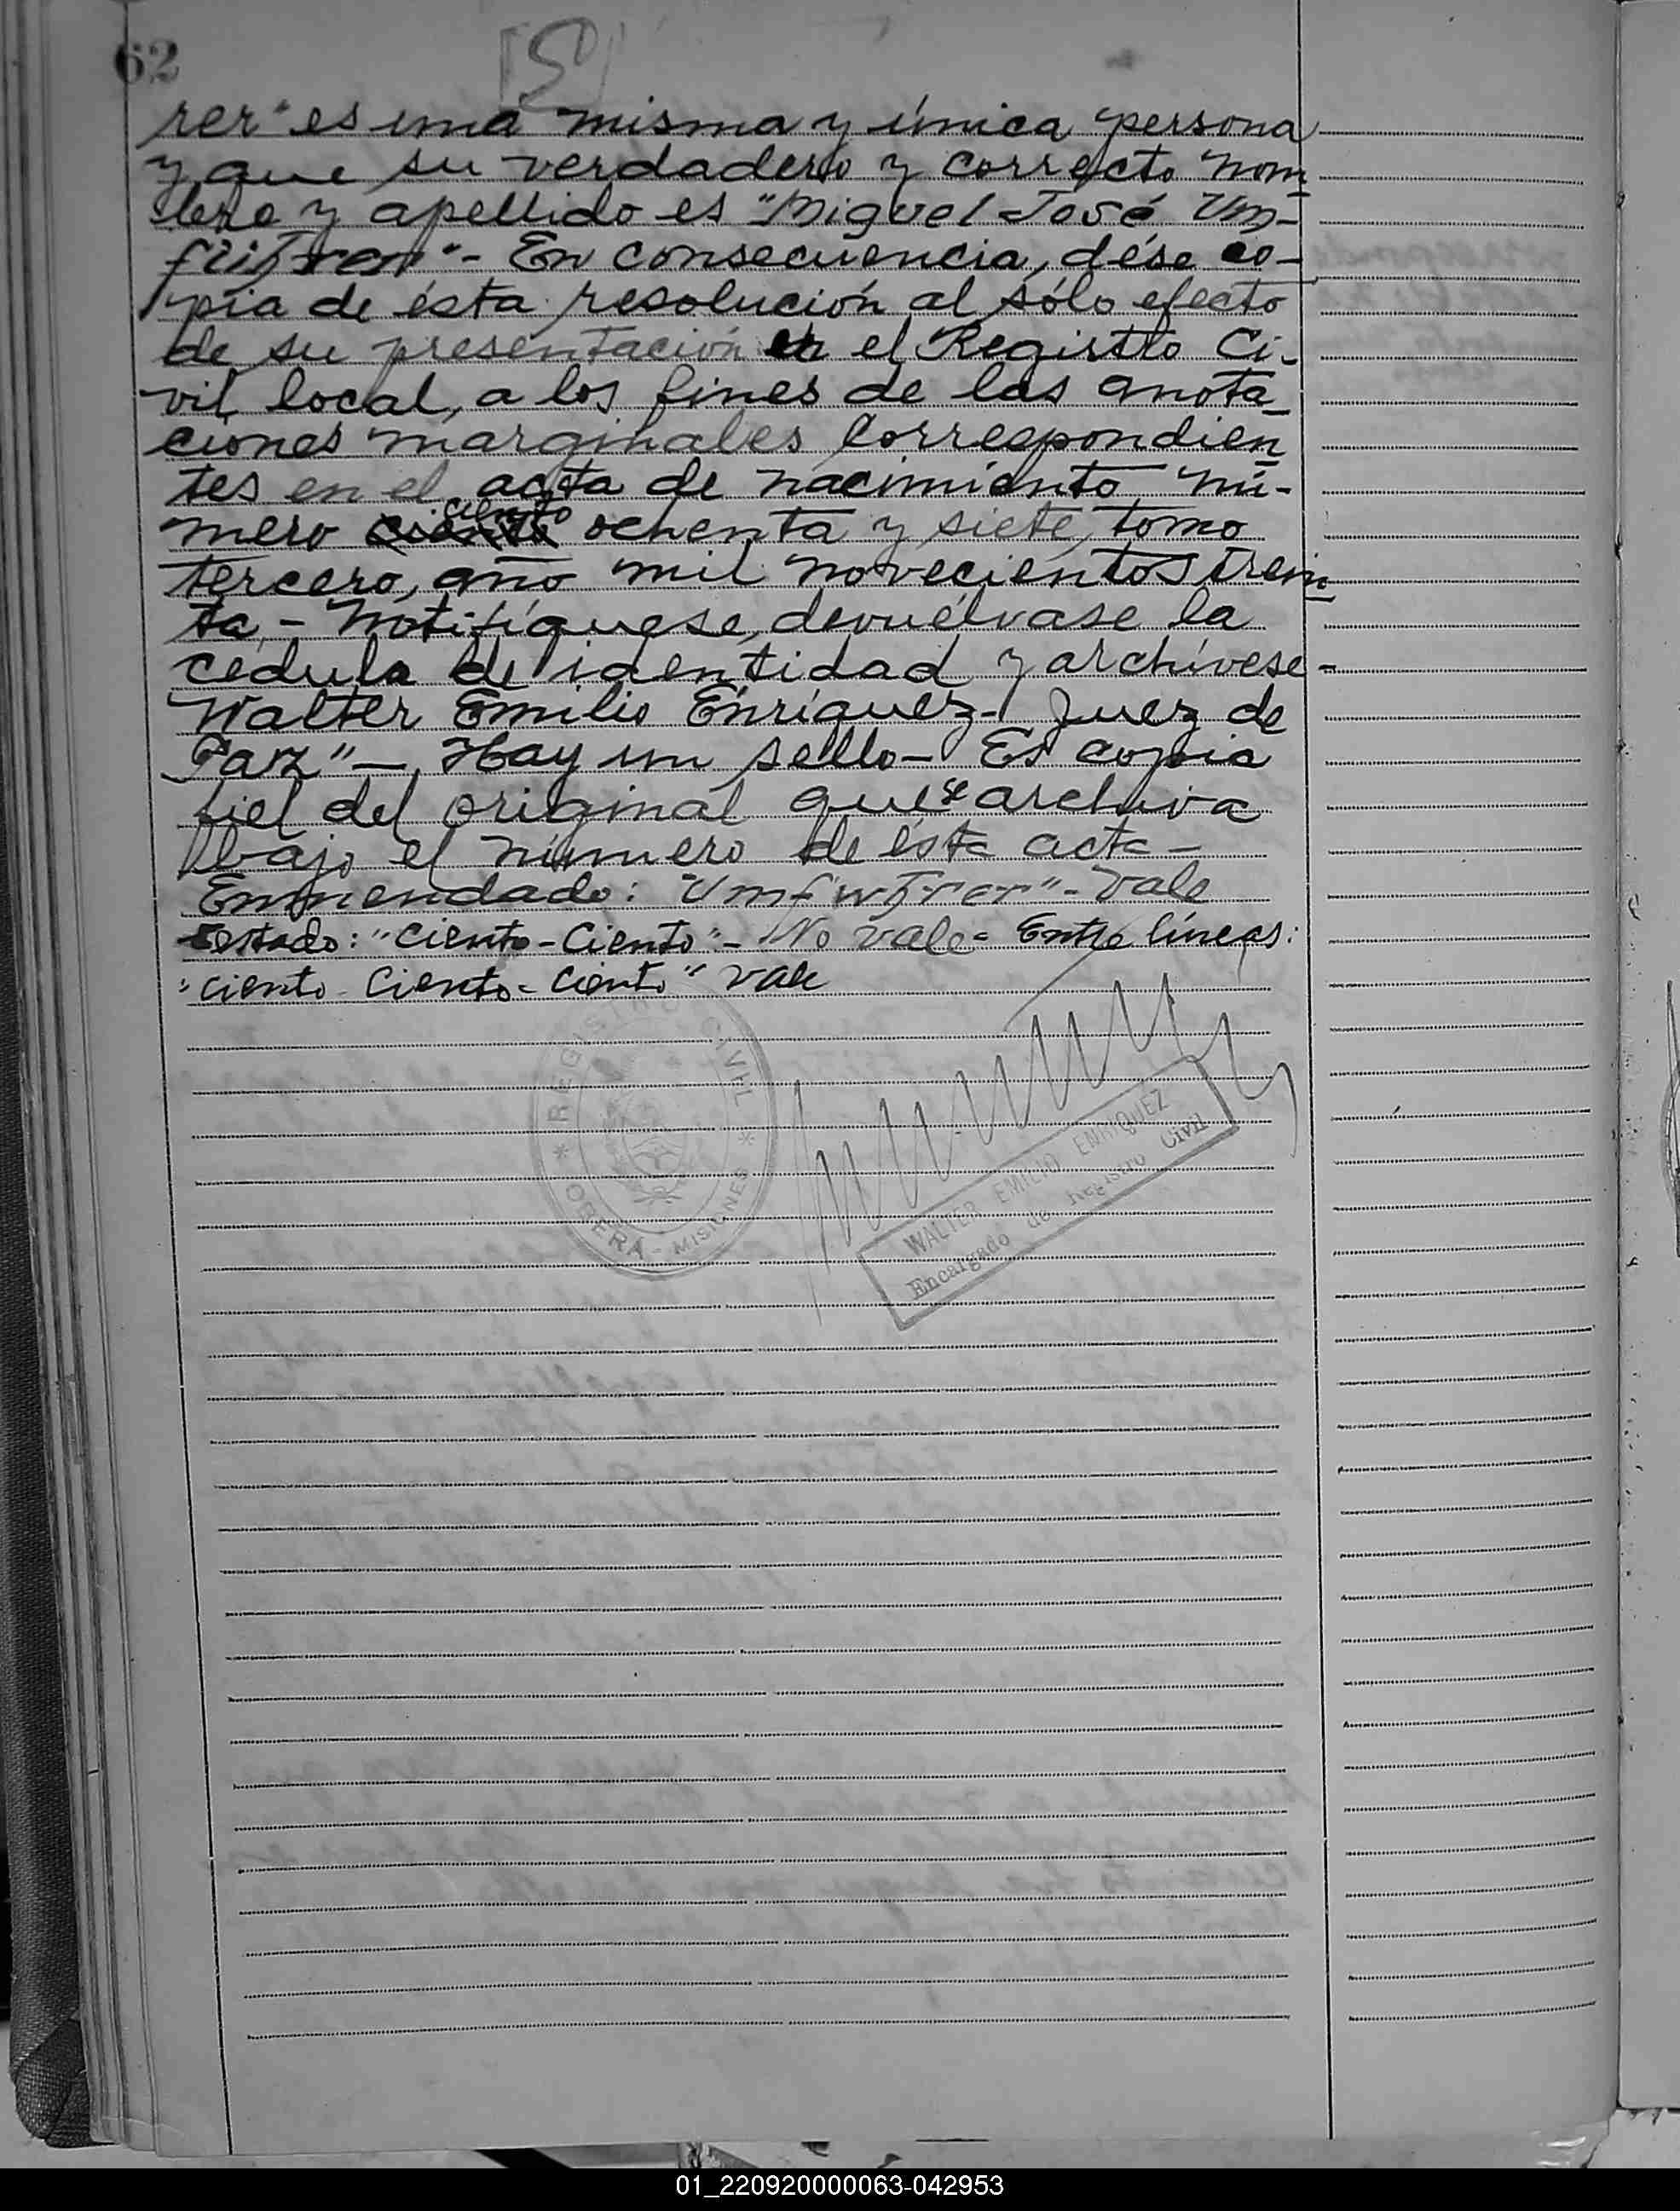 62
rer" es una misma y única persona
y que su verdadero y correcto nom
bre y apellido es "Miguel José Um-
". - En consecuencia, dése co-
pia de ésta resolución al sólo efecto
de su presentación en el Registro Ci-
vil local, a los fines de las anota
ciones marginales correspondien
tes en el acta de nacimiento nú-
ciento
mero ciento ochenta y siete, tomo
tercero, año mil novecientos trein
ta. - Notifíquese, devuélvase la
cédula de identidad y archívese -
Walter Emilio Enríquez - Juez de
Paz" - Hay un sello - Es copia
fiel del original que se archiva
bajo el número de ésta acta -
Enmendado: - Vale
Testado: "Ciento - Ciento" - No vale = Entre líneas:
"Ciento - Ciento - Ciento" vale
* REGISTRO CIVIL *
OBERÁ - MISIONES
WALTER EMILIO ENRIQUEZ
Encargado de Registro Civil
01_220920000063-042953